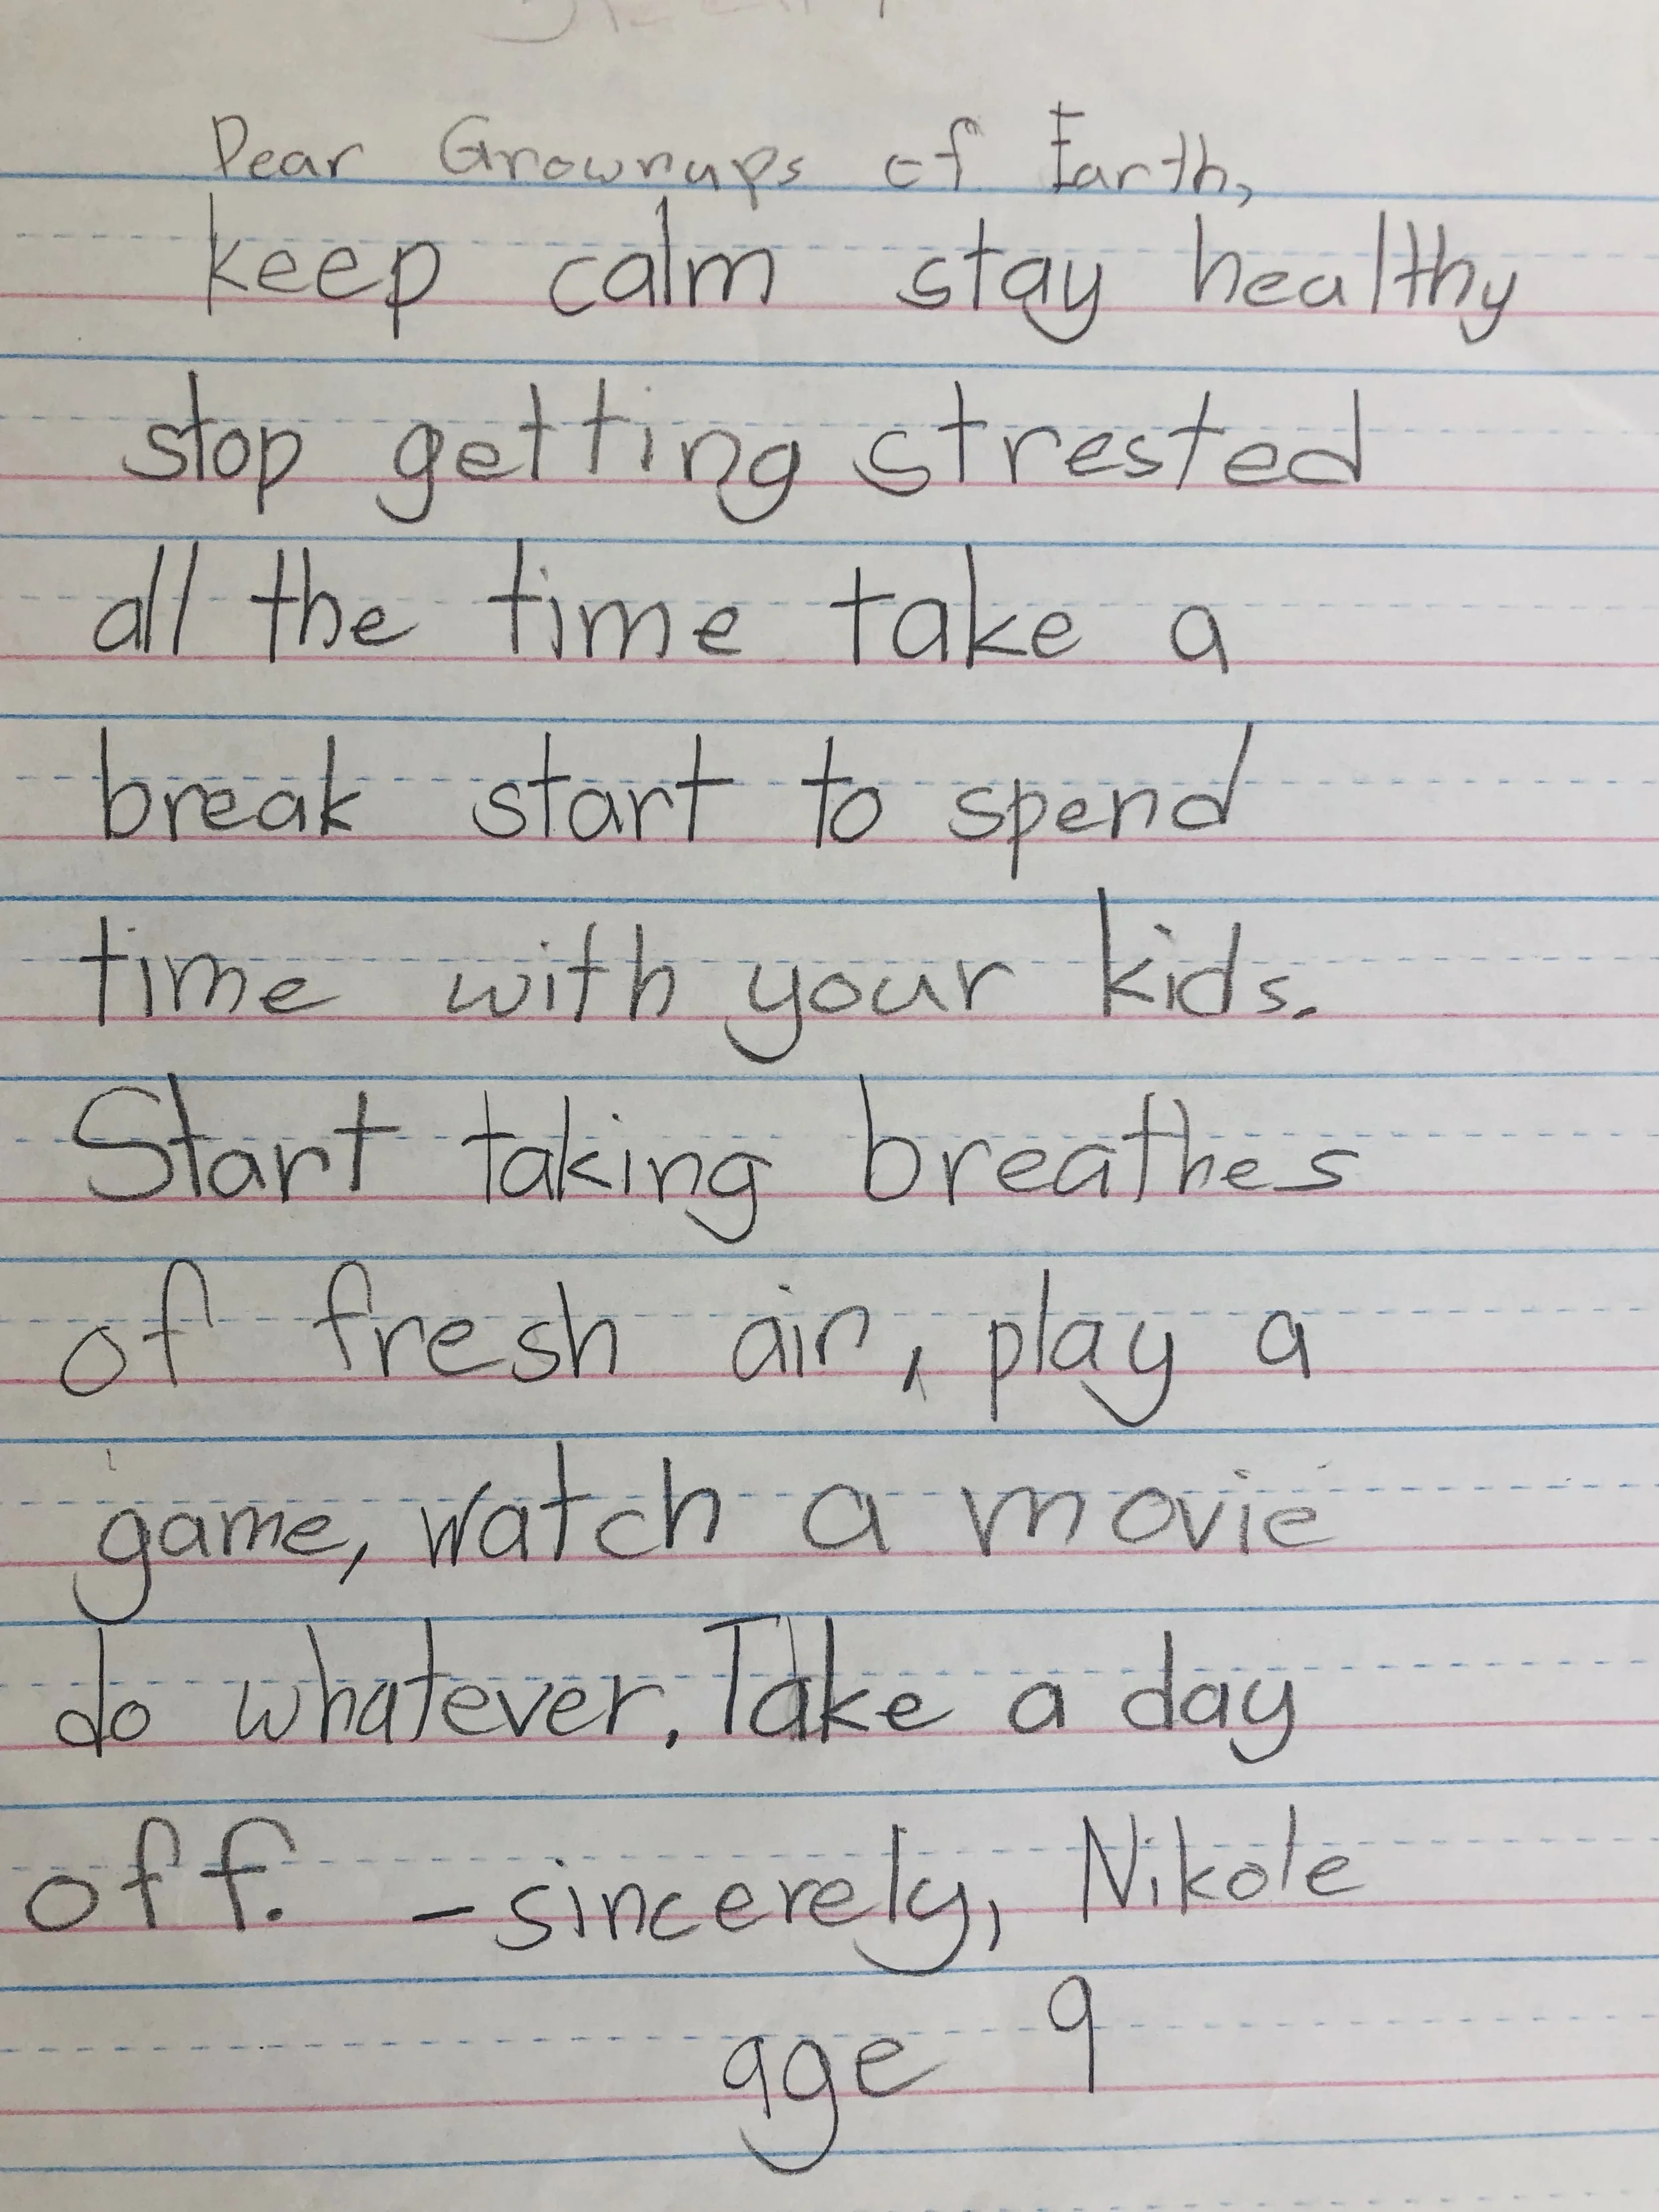 Dear Grownups of Earth,
keep calm stay healthy
stop getting strested
all the time take a
break start to spend
time with your kids.
Start taking breathes
of fresh air, play a
game, watch a movie
do whatever. Take a day
off. - sincerely, Nikole
age 9